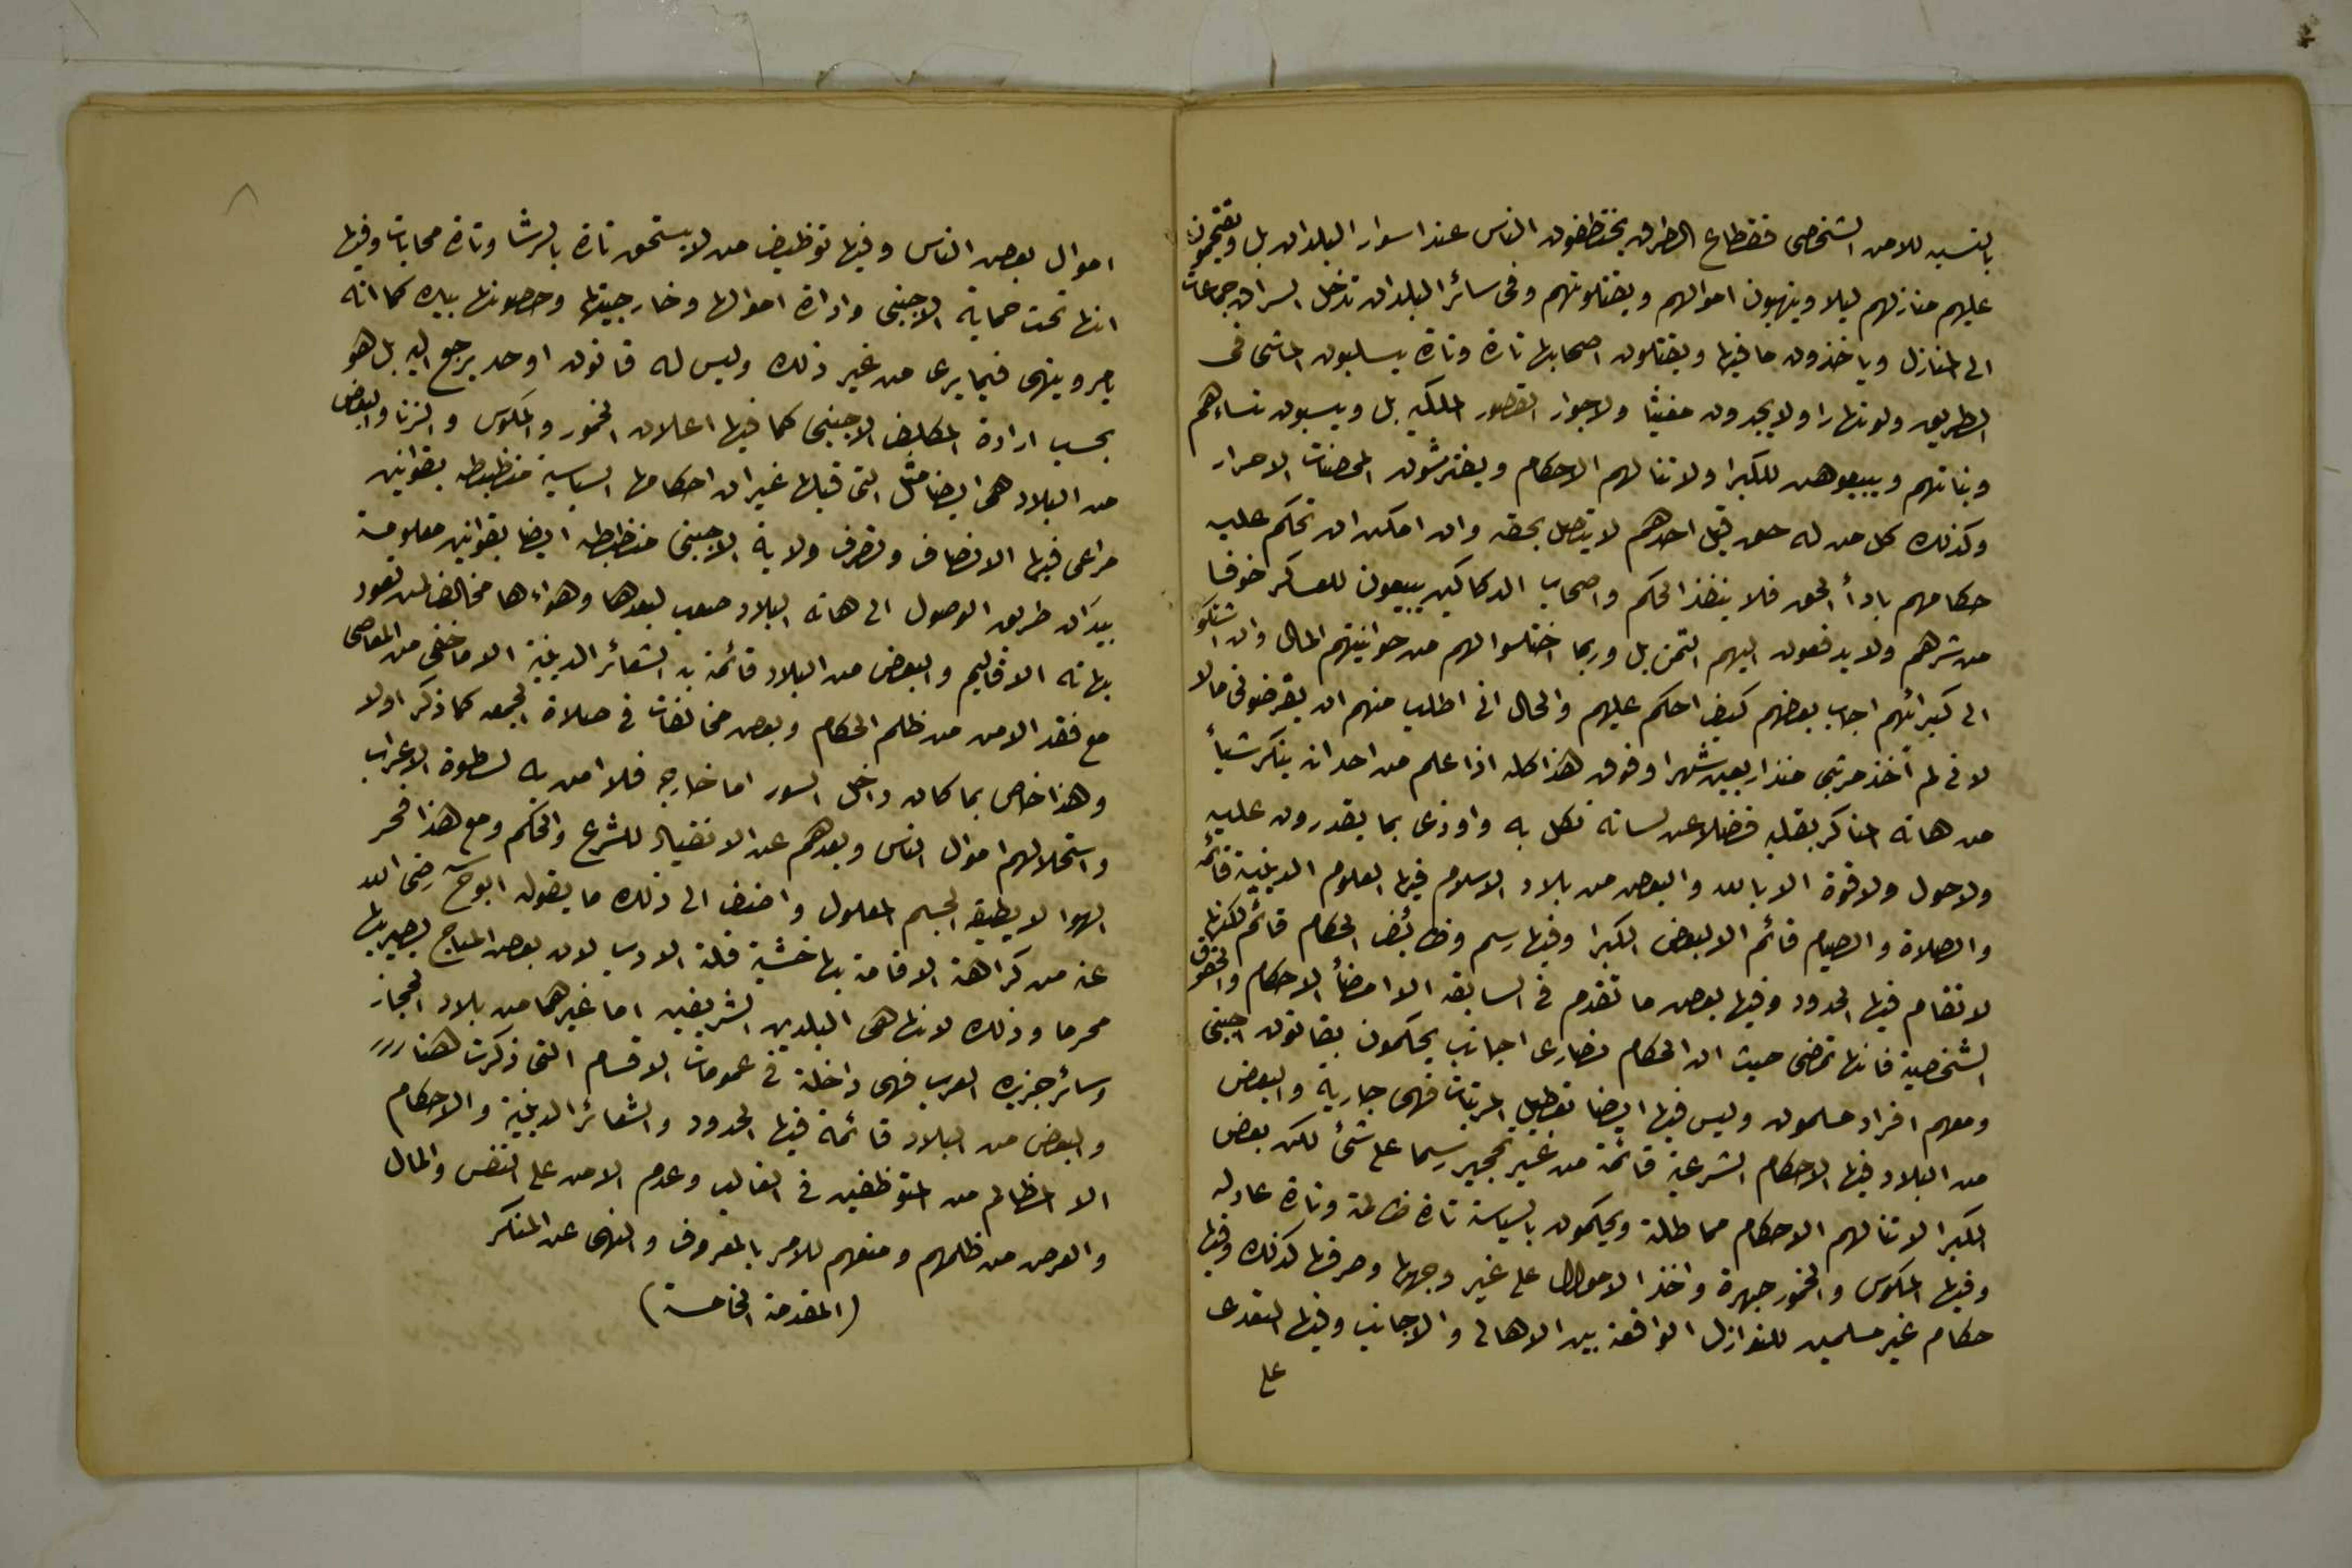 بالنسبه للامن الشخصى فقطاع الطرق يختطفون الناس عند اسوار البلدان بل ويقتحمون
عليهم منازلهم ليلا وينهبون اموالهم ويقتلونهم وفى سائر البلدان تدخل السراق جماعات
الى المنازل وياخذون ما فيها ويقتلون اصحابها تارة وتارة يسلبون الماشى فى
الطريق ولو نهارا ولا يجدون مغيثا ولا جوار القصور الملكيه بل ويسبون نساءهم
وبناتهم ويبيعوهن للكبرا ولا تنالهم الاحكام ويفترشون المحصنات الاحرار
وكذلك كل من له حق قبل احدهم لا يتصل بحقه وان امكن ان تحكم عليه
حكامهم بادأ الحق فلا ينفذ الحكم واصحاب الدكاكين يبيعون للعسكر خوفا
من شرهم ولا يدفعون اليهم الثمن بل وربما اختلسوا لهم من حوانيتهم المال وان اشتكوا
الى كبرائهم اجاب بعضهم كيف احكم عليهم والحال انى اطلب منهم ان يقرضونى مالا
لانى لم أخذ مرتبى منذ اربعين شهرا وفوق هذا كله اذا علم من احد انه ينكر شيأ
من هاته المناكر بقلبه فضلا عن لسانه نكل به واوذى بما يقدرون عليه
ولا حول ولا قوة الا بالله والبعض من بلاد الاسلام فيها العلوم الدينية قائمه
والصلاة والصيام قائم الا لبعض الكبرا وفيها رسم وظائف الحكام قائم لكنها
لا تقام فيها الحدود وفيها بعض ما تقدم فى السابقه الا امضأ الاحكام والحقوق
الشخصية فانها تمضى حيث ان الحكام نصارى اجانب يحكمون بقانون اجنبى
ومعهم افراد مسلمون وليس فيها ايضا تعطيل المرتبات فهى جارية والبعض
من البلاد فيها الاحكام الشرعية قائمة من غير تحجير رسما على شئ لكن بعض
الكبرا لا تنالهم الاحكام مماطلة ويحكمون بالسياسة تارة ظالمة وتارة عادله
وفيها المكوس والخمور جهرة واخذ الاموال على غير وجهها وصرفها كذلك وفيها
حكام غير مسلمين للنوازل الواقعة بين الاهالى والاجانب وفيها التعدى
على
اموال بعض الناس وفيها توظيف من لا يستحق تارة بالرشا وتارة محابات وفيها
انها تحت حماية الاجنبى وادارة اموالها وخارجيتها وحصونها بيده كما انه
يامر وينهى فيما يرى من غير ذلك وليس له قانون او حد يرجع اليه بل هو
بحسب ارادة المكلف الاجنبى كما فيها اعلان الخمور والمكوس والزنا والبعض
من البلاد هى ايضا مثل التى قبلها غير ان احكامها السياسية منظبطه بقوانين
مراعى فيها الانصاف وتصرف ولاية الاجنبى منظبطه ايضا بقوانين معلومة
بيد ان طريق الوصول الى هاته البلاد صعب لبعدها وهواءها مخالف لمن تعود
بهاته الاقاليم والبعض من البلاد قائمة به الشعائر الدينية الا ما خفى من المعاصى
مع فقد الامن من ظلم الحكام وبعض مخالفات فى صلاة الجمعه كما ذكر اولا
وهذا خاص بما كان داخل السور اما خارجه فلا امن به لسطوة الاعراب
واستحلالهم اموال الناس وبعدهم عن الانقياد للشرع والحكم ومع هذا فحر
الهوا لا يطيقه الجسم المعلول واضف الى ذلك ما يقوله ابو ح رضى الله
عنه من كراهة الاقامة بها خشية قلة الادب لان بعض المباح يصير بها
محرما وذلك لانها هى البلدين الشريفين اما غيرهما من بلاد الحجاز
وسائر جزيره العرب فهى داخلة فى عمومات الاقسام التى ذكرت هنا
والبعض من البلاد قائمة فيها الحدود والشعائر الدينية والاحكام
الا المظالم من المتوظفين فى الغالب وعدم الامن على النفس والمال
والعرض من ظلمهم ومنعهم للامر بالمعروف والنهى عن المنكر
(المقدمة الخامسة)